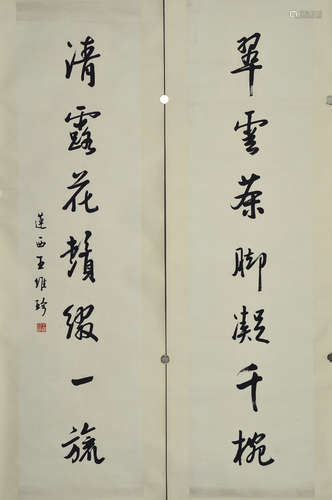 翠雲茶腳凝千椀
清露花鬚綴一旒
蓮西王維珍